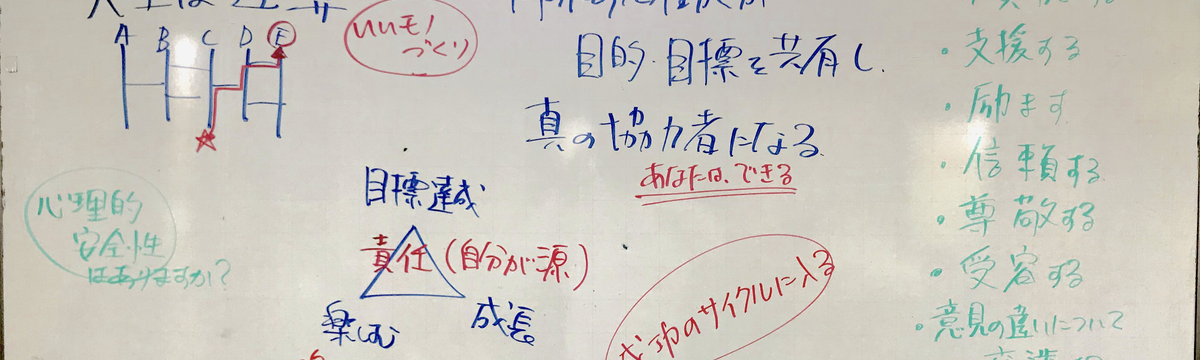 A B C D E
いいモノ
づくり
目的・目標を共有し、
真の協力者になる
あなたは、できる
・支援する
・励ます
・信頼する
・尊敬する
・受容する
・意見の違いについて
心理的
安全性
はありますか?
目標達成
責任(自分が源)
楽しむ
成長
成功のサイクルに入る